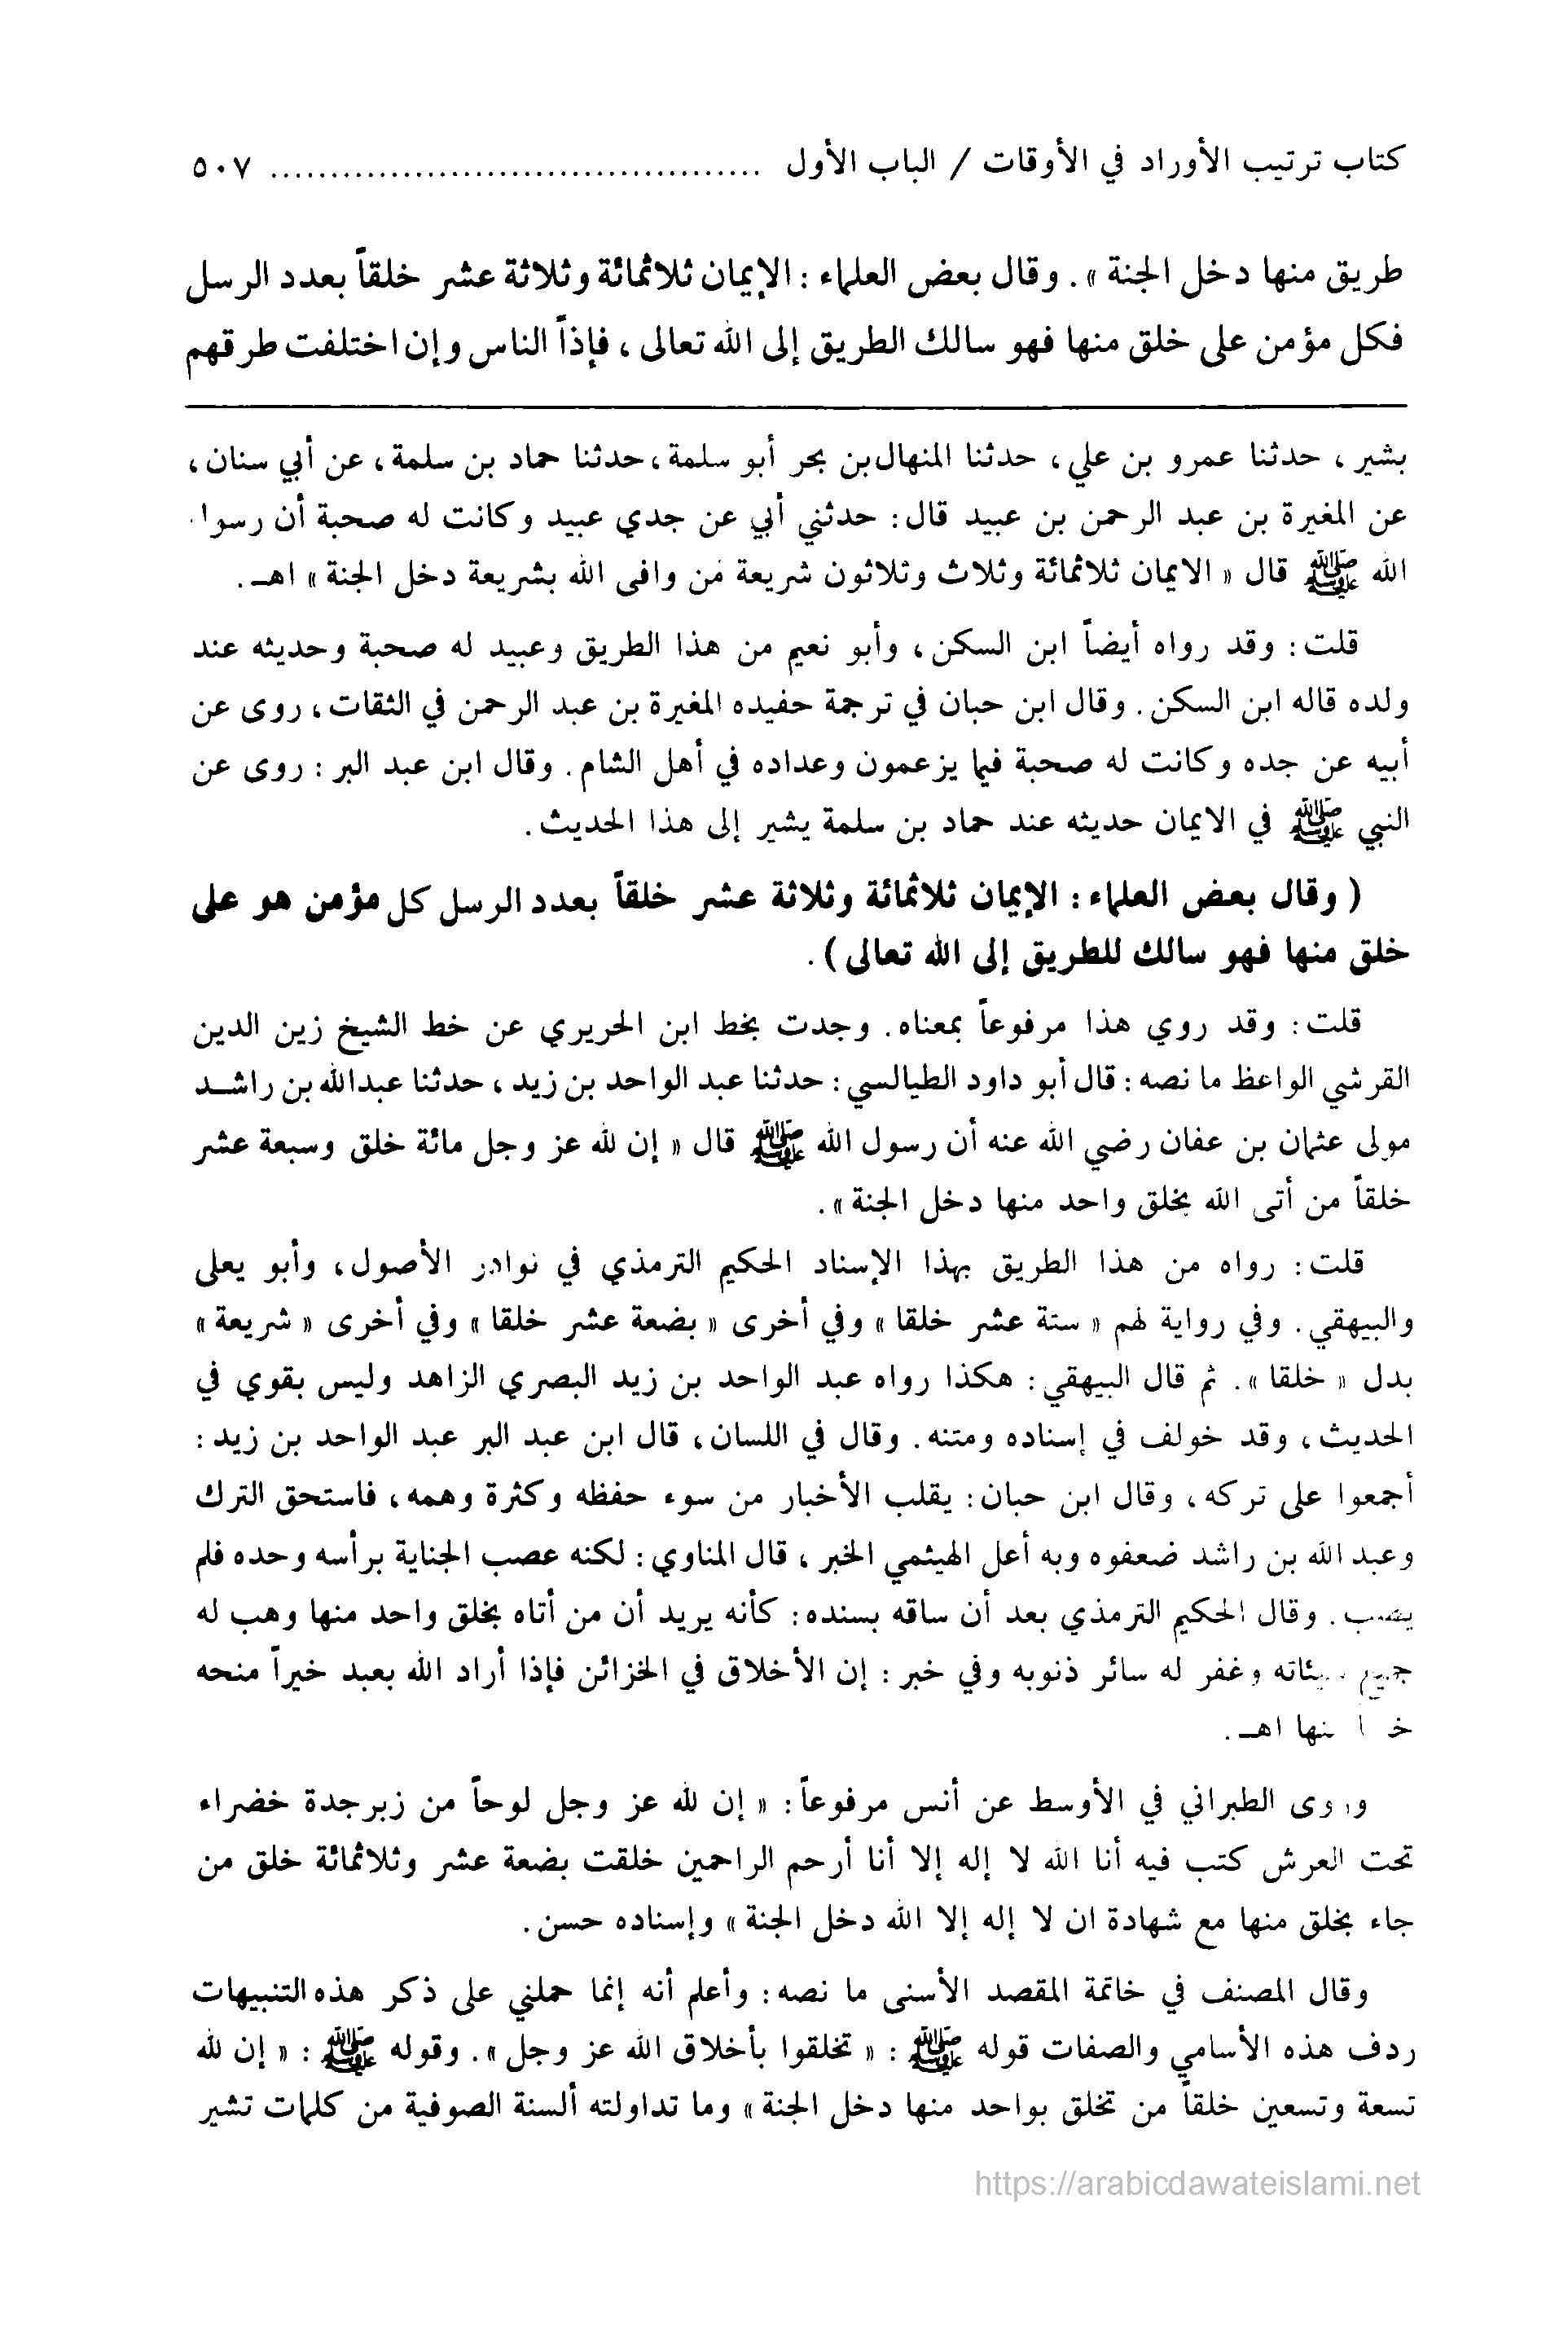 كتاب ترتيب الأوراد في الأوقات / الباب الأول ........................................ ٥٠٧
طريق منها دخل الجنة » . وقال بعض العلماء : الإيمان ثلاثمائة وثلاثة عشر خلقاً بعدد الرسل
فكل مؤمن على خلق منها فهو سالك الطريق إلى الله تعالى ، فإذاً الناس وإن اختلفت طرقهم
بشير ، حدثنا عمرو بن علي، حدثنا المنهال بن بحر أبو سلمة، حدثنا حماد بن سلمة، عن أبي سنان،
عن المغيرة بن عبد الرحمن بن عبيد قال: حدثني أبي عن جدي عبيد وكانت له صحبة أن رسول
الله ﷺ قال « الايمان ثلاثمائة وثلاث وثلاثون شريعة مَن وافى الله بشريعة دخل الجنة » اهـ .
قلت: وقد رواه أيضاً ابن السكن، وأبو نعيم من هذا الطريق وعبيد له صحبة وحديثه عند
ولده قاله ابن السكن. وقال ابن حبان في ترجمة حفيده المغيرة بن عبد الرحمن في الثقات، روى عن
أبيه عن جده وكانت له صحبة فيما يزعمون وعداده في أهل الشام. وقال ابن عبد البر : روى عن
النبي ﷺ في الايمان حديثه عند حماد بن سلمة يشير إلى هذا الحديث.
( وقال بعض العلماء : الإيمان ثلاثمائة وثلاثة عشر خلقاً بعدد الرسل كل مؤمن هو على
خلق منها فهو سالك للطريق إلى الله تعالى ) .
قلت: وقد روي هذا مرفوعاً بمعناه. وجدت بخط ابن الحريري عن خط الشيخ زين الدين
القرشي الواعظ ما نصه : قال أبو داود الطيالسي : حدثنا عبد الواحد بن زيد ، حدثنا عبدالله بن راشد
مولى عثمان بن عفان رضي الله عنه أن رسول الله ﷺ قال « إن لله عز وجل مائة خلق وسبعة عشر
خلقاً من أتى الله بخلق واحد منها دخل الجنة ».
قلت: رواه من هذا الطريق بهذا الإسناد الحكيم الترمذي في نوادر الأصول، وأبو يعلى
والبيهقي. وفي رواية لهم « ستة عشر خلقا » وفي أخرى « بضعة عشر خلقا » وفي أخرى « شريعة »
بدل « خلقا ». ثم قال البيهقي: هكذا رواه عبد الواحد بن زيد البصري الزاهد وليس بقوي في
الحديث، وقد خولف في إسناده ومتنه. وقال في اللسان، قال ابن عبد البر عبد الواحد بن زيد :
أجمعوا على تركه، وقال ابن حبان: يقلب الأخبار من سوء حفظه وكثرة وهمه، فاستحق الترك
وعبد الله بن راشد ضعفوه وبه أعل الهيثمي الخبر ، قال المناوي: لكنه عصب الجناية برأسه وحده فلم
يصب. وقال الحكيم الترمذي بعد أن ساقه بسنده: كأنه يريد أن من أتاه بخلق واحد منها وهب له
جميع سيئاته وغفر له سائر ذنوبه وفي خبر : إن الأخلاق في الخزائن فإذا أراد الله بعبد خيراً منحه
منها اهـ .
وروى الطبراني في الأوسط عن أنس مرفوعاً: « إن لله عز وجل لوحاً من زبرجدة خضراء
تحت العرش كتب فيه أنا الله لا إله إلا أنا أرحم الراحمين خلقت بضعة عشر وثلاثمائة خلق من
جاء بخلق منها مع شهادة ان لا إله إلا الله دخل الجنة » وإسناده حسن.
وقال المصنف في خاتمة المقصد الأسنى ما نصه: وأعلم أنه إنما حملني على ذكر هذه التنبيهات
ردف هذه الأسامي والصفات قوله ﷺ : « تخلقوا بأخلاق الله عز وجل ». وقوله ﷺ : « إن لله
تسعة وتسعين خلقاً من تخلق بواحد منها دخل الجنة » وما تداولته ألسنة الصوفية من كلمات تشير
https://arabicdawateislami.net